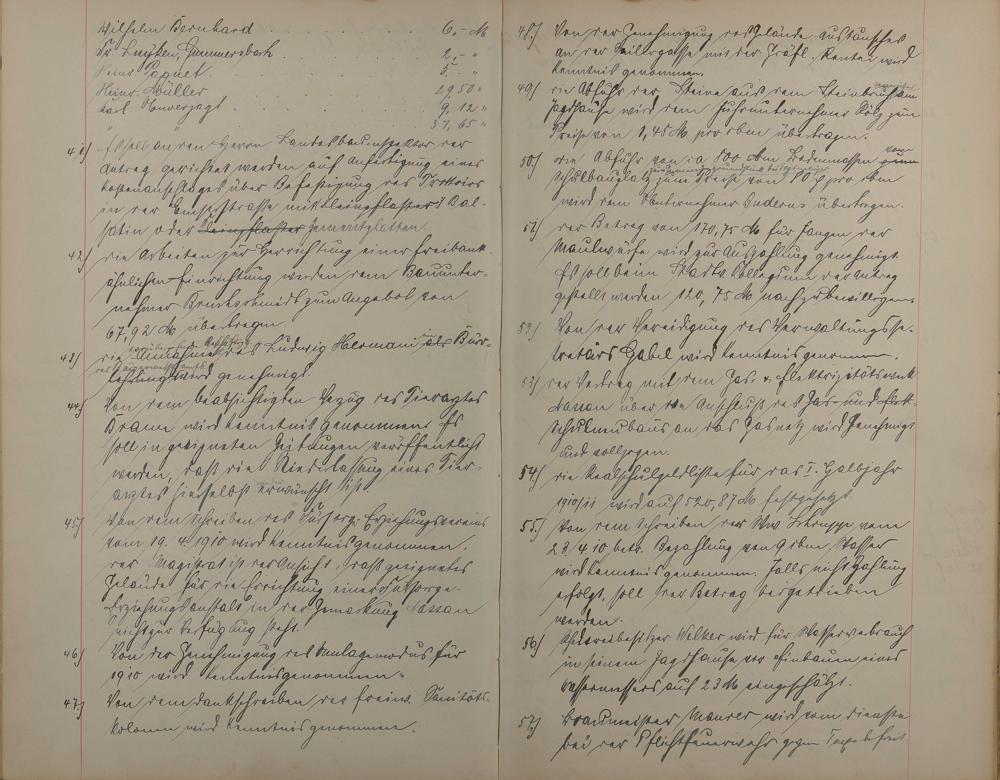 Wilhelm Bernhard . . . . . . 6.- M
Dr. Luyken, Gummersbach . . . 2,- "
Heinr. Paquet . . . . 5.- "
Heinr. Müller . . . . 29 50 "
Karl Unverzagt . . . . 9. 12 "
37, 65 "
41) Es soll an den Herrn Landesbauinspektor der
Antrag gerichtet werden auf Anfertigung eines
Kostenanschlages über Befestigung des Trottoirs
in der Emserstrasse mit Kleinpflaster, Ba-
saltin oder Kleinpflaster Zementplatten.
42) die Arbeiten zur Herrichtung einer freibank-
ähnlichen Einrichtung werden dem Bauunter-
nehmer zum Angebot von
67,92 M übertragen
43) die des Ludwig Hermani als Bür-
wird genehmigt.
44) Von dem beabsichtigten Verzug des Tierarztes
Braun wird Kenntnis genommen. Es
soll in geeigneten Zeitungen veröffentlicht
werden, daß die Niederlassung eines Tier-
arztes hierselbst erwünscht ist.
45) Von dem Schreiben des Fürsorge Erziehungsvereins
vom 19. 4. 1910 wird Kenntnis genommen.
der Magistrat ist der Ansicht, daß geeignetes
Gelände für die Errichtung einer Fürsorge-
Erziehungsanstalt in der Gemarkung Nassau
nicht zur Verfügung steht.
46) Von der Genehmigung des Umlagemodus für
1910 wird Kenntnis genommen.
47) Von dem Dankschreiben der freiw. Sanitäts-
kolonne wird Kenntnis genommen.
48) Von der Genehmigung des Gelände-Austausches
an der Seilergasse mit der Gräfl. Rentei wird
Kenntnis genommen.
49) die Abfuhr der Steine aus dem Steinbruch am
Jagdhause wird dem Fuhrunternehmer Kölz zum
Preise von 1,45 M pro cbm übertragen.
50) die Abfuhr von ca 800 cbm Bodenmassen vom
Schulbauplatz zum Preise von 80 pro cbm
wird dem Unternehmer Buderus übertragen.
51) der Betrag von 170,75 M für Fangen der
Maulwürfe wird zur Auszahlung genehmigt.
Es soll beim Stadtv. Kollegium der Antrag
gestellt werden 120,75 M nachzubewilligen.
52) Von der Vereidigung des Verwaltungsse-
kretärs Gabel wird Kenntnis genommen.
53) der Vertrag mit dem Gas- u. Elektrizitätswerk
Nassau über den Anschluß des Gas- und Elek-
Schulneubaus an das Gasnetz wird genehmigt
und vollzogen.
54) die Realschulgeldliste für das I. Halbjahr
1910/11 wird auf 520,87 M festgesetzt
55) Von dem Schreiben der Ww. vom
23/4 10 betr. Bezahlung von 9 cbm Wasser
wird Kenntnis genommen. Falls nicht Zahlung
erfolgt, soll der Betrag beigetrieben
werden.
56) Schereibesitzer Welker wird für Wasserverbrauch
in seinem Jagdhause vor Einbauen eines
Wassermessers auf 23 M eingeschätzt.
57) Brandmeister Maurer wird vom Dienste
bei der Pflichtfeuerwehr gegen befreit